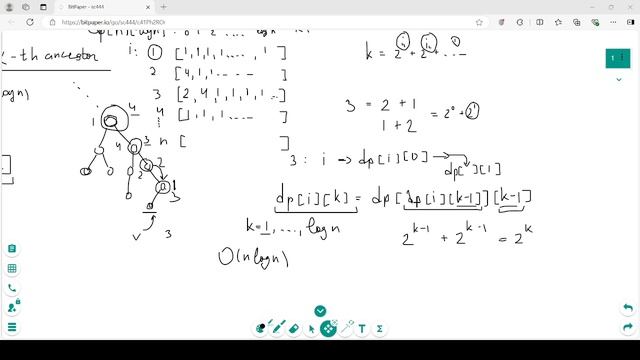 BitPaper.io - sc444
https://bitpaper.io/go/sc444/c41Ph2ROi
k-th ancestor
logn)
i: 1 [1,1,1,1,...., 1 ]
2 [4,1,1...
3 [2,4,1,1,1,... ]
4 [1,1,1,....
n [ ]
k = 2^i1 + 2^i2 + ...
3 = 2 + 1
1 + 2
= 2^0 + 2^1
3: i → dp[i][0] → dp[ ][1]
dp[i][k] = dp[dp[i][k-1]][k-1]
k=1,...,logn
2^k-1 + 2^k-1 = 2^k
O(nlogn)
1
4
4
3
2
2
1
3
v 3
1